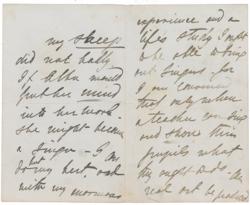 my sheep
did not hally
If Alba would
put her mind
into her work
she might become
a singer - I am
doing my best and
with my enormous
experience and a
life's study I ought
to be able to bring
out singers for
I am convinced
that only when
a teacher can sing
and show their
pupils what
they ought to do
real art be